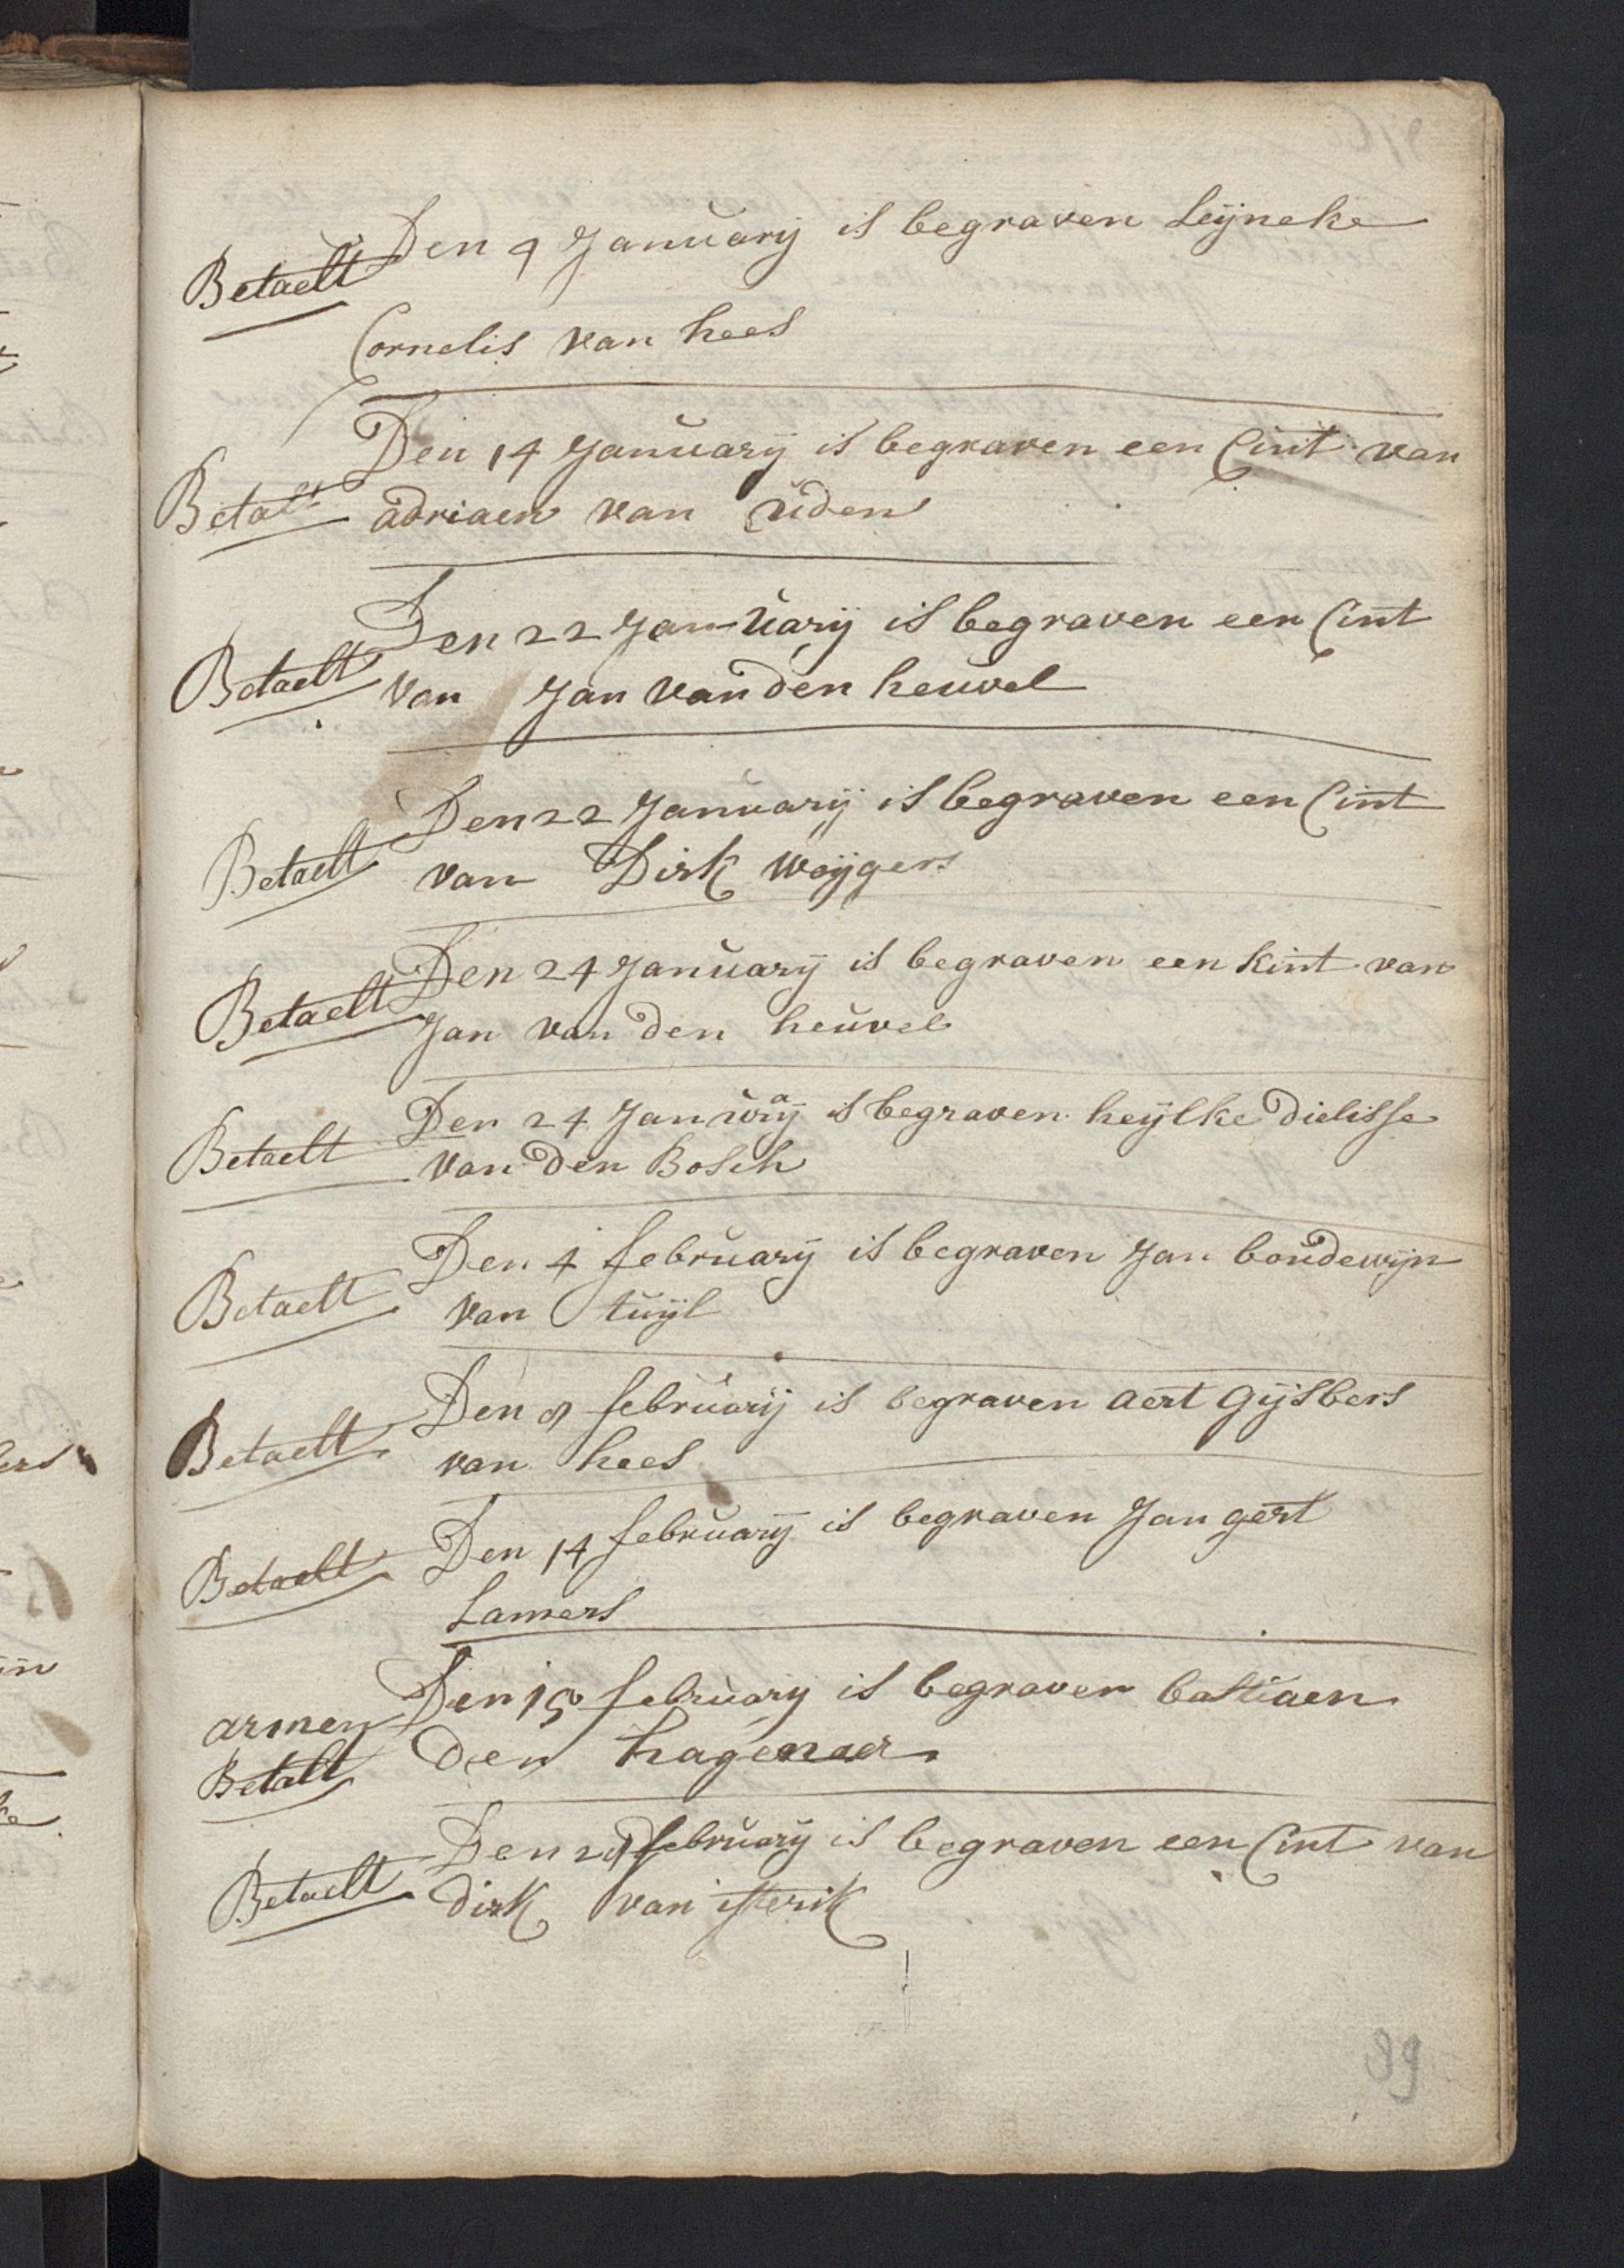 Betaelt Den 9 Januarij is begraven Leijneke
Cornelis van hees
Den 14 Januarij is begraven een Cint van
Betalt adriaen van uden
Den 22 Januarij is begraven een Cint
Betaelt van Jan van den heuvel
Den 22 Januarij is begraven een Cint
Betaelt van Dirk weijgers
Den 24 Januarij is begraven een kint van
Betaelt Jan van den heuvel
Den 24 Januarij is begraven heijlke dielisse
Betaelt van den Bosch
Den 4 februarij is begraven Jan boudewijn
Betaelt van tuijl
Den 8 februarij is begraven aert Gijsbers
Betaelt van hees
Den 14 februarij is begraven Jan gert
Betaelt
Lamers
armen Den februarij is begraven bastiaen
Betalt den hagenaer
Den februarij is begraven een Cint van
Betaelt dirk van isterik
89